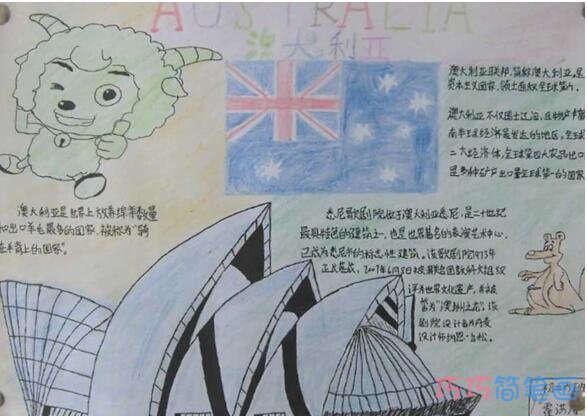 AUSTRALIA
澳大利亚
澳大利亚联邦,简称澳大利亚,是
资本主义国家,领土面积全球第六,
澳大利亚不仅国土辽阔,且物产丰富
南半球经济最发达的地区,全球第
二大经济体,全球第四大农产品出口
是多种矿产出口量全球第一的国家
澳大利亚是世界上放养绵羊数量
和出口羊毛最多的国家,被称为"骑
在羊背上的国家"。
悉尼歌剧院位于澳大利亚悉尼,是二十世纪
最具特色的建筑之一,也是世界著名的表演艺术中心,
已成为悉尼市的标志性建筑。该歌剧院1973年
正式落成,2007年6月28日被联合国教科文组织
评为世界文化遗产,
该
剧院设计者为丹麦
设计师约恩·乌松。
巧巧简笔画